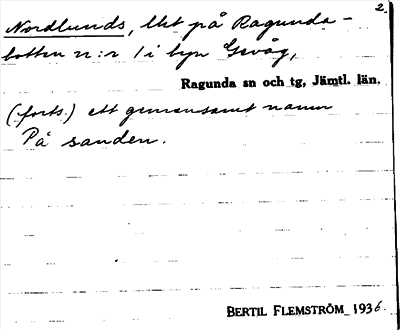 2.
Nordlunds, lht på Ragunda-
botten nr:r 1 i byn Gevåg,
Ragunda sn och tg, Jämtl. län.
(forts.) ett gemensamt namn
På sanden.
BERTIL FLEMSTRÖM 1936.